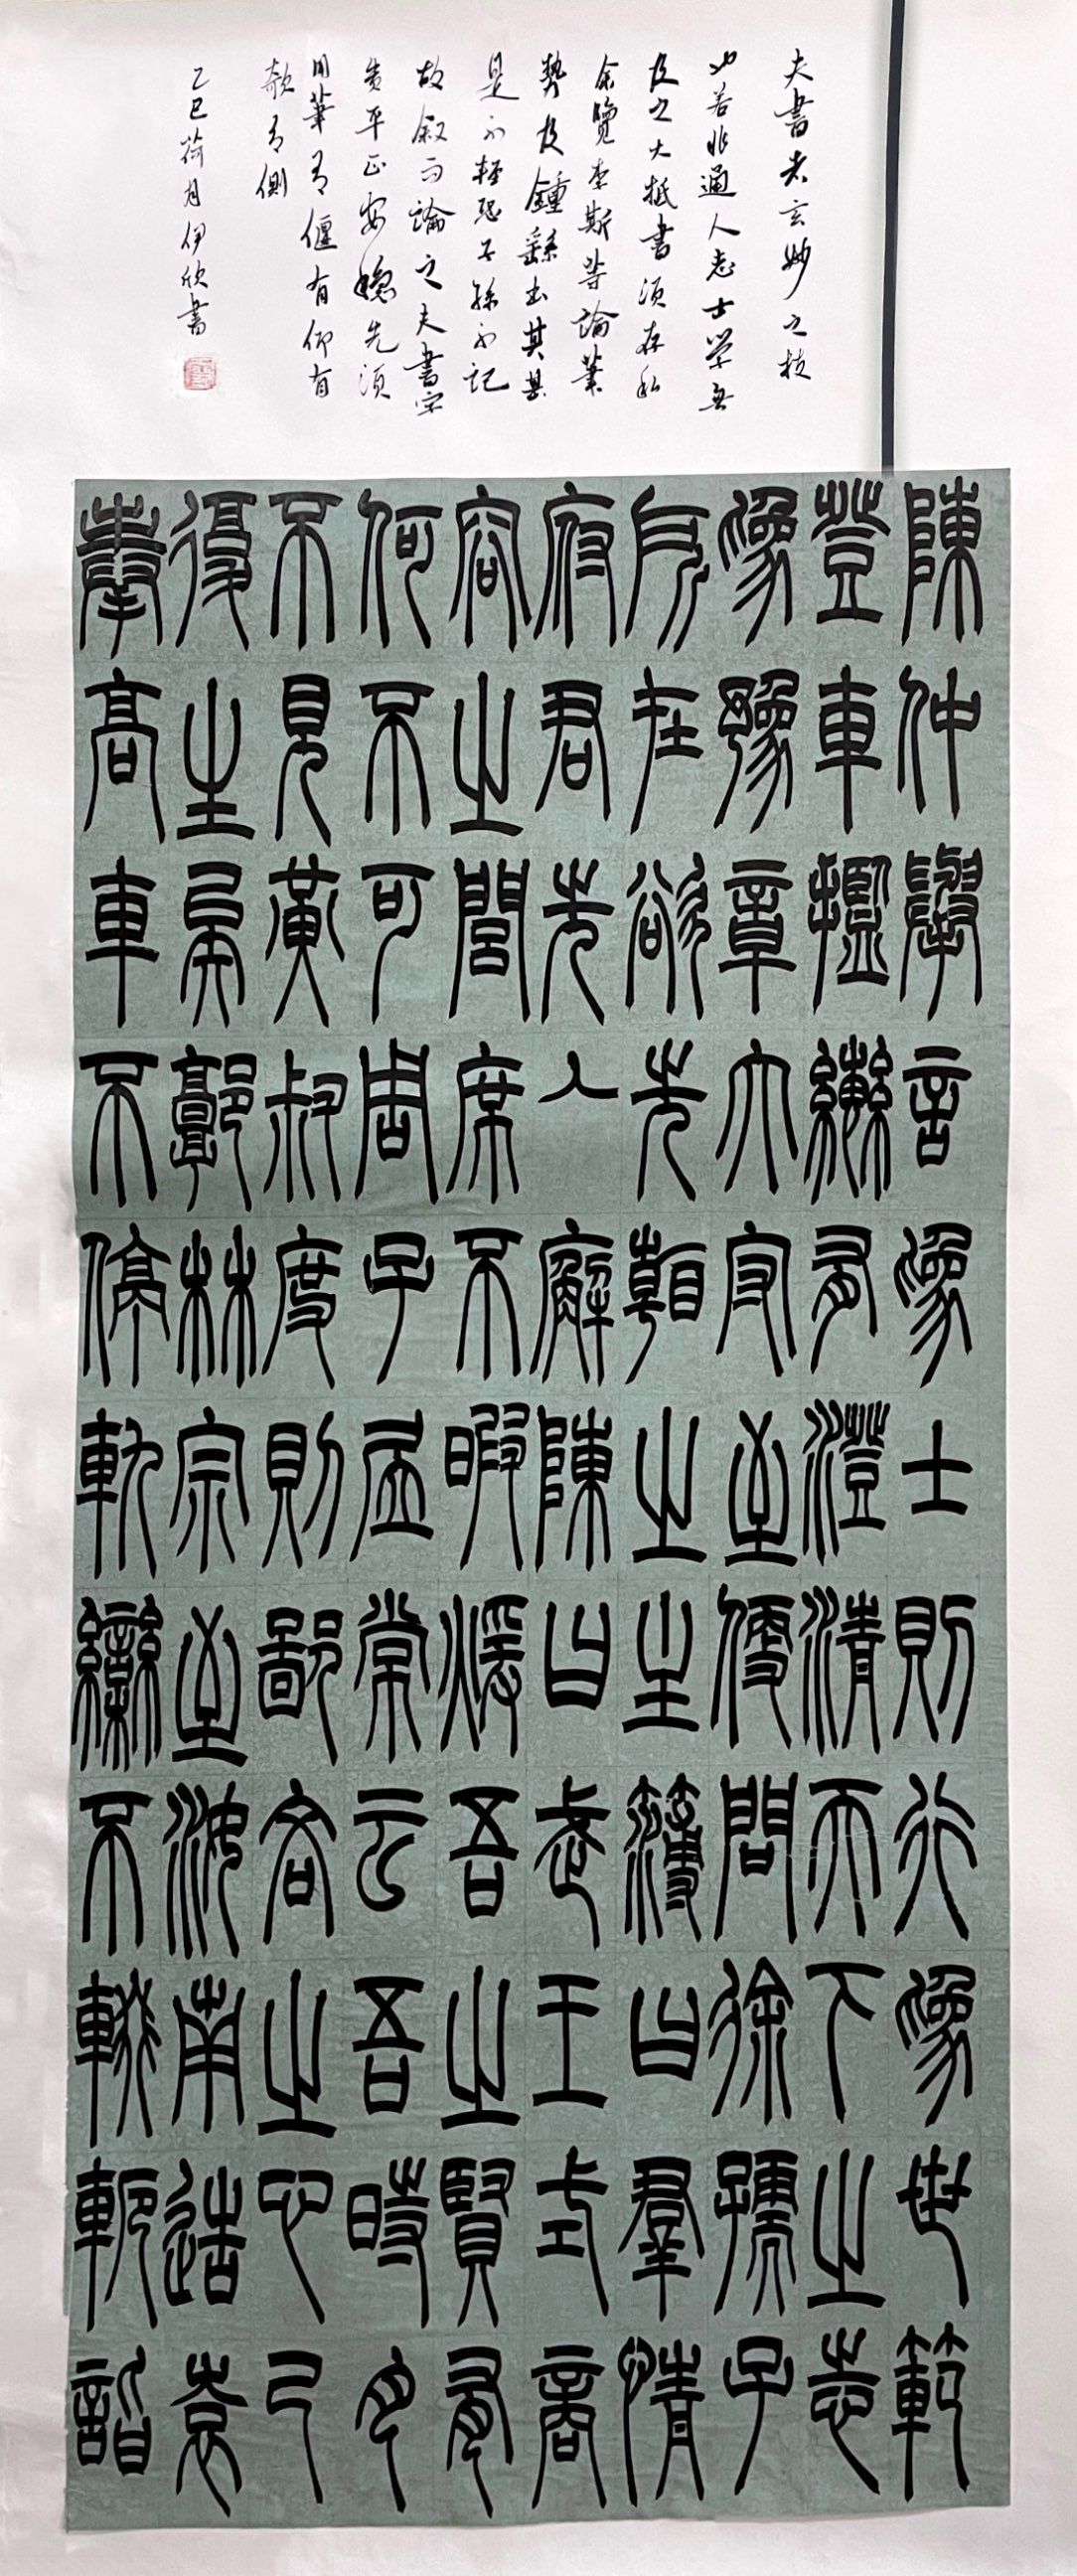 夫書者玄妙之技
也若非通人志士學無
及之大抵書須存私
余覽李斯等論筆
勢及鍾繇書其甚
是不輕恐子孫不記
故叙而論之夫書字
貴平正安穩先須
用筆有偃有仰有
欹有側
乙巳荷月伊欣書
陳仲舉言爲士則行爲世範
登車攬轡有澄清天下之志
爲豫章太守至便問徐孺子
所在欲先看之主簿曰羣情
府君先入廨陳曰武王式商
容之閭席不暇煖吾之賢有
何不可周子居常云吾時月
不見黃叔度則鄙吝之心已
復生矣郭林宗至汝南造袁
奉高車不停軌鸞不輟軛詣